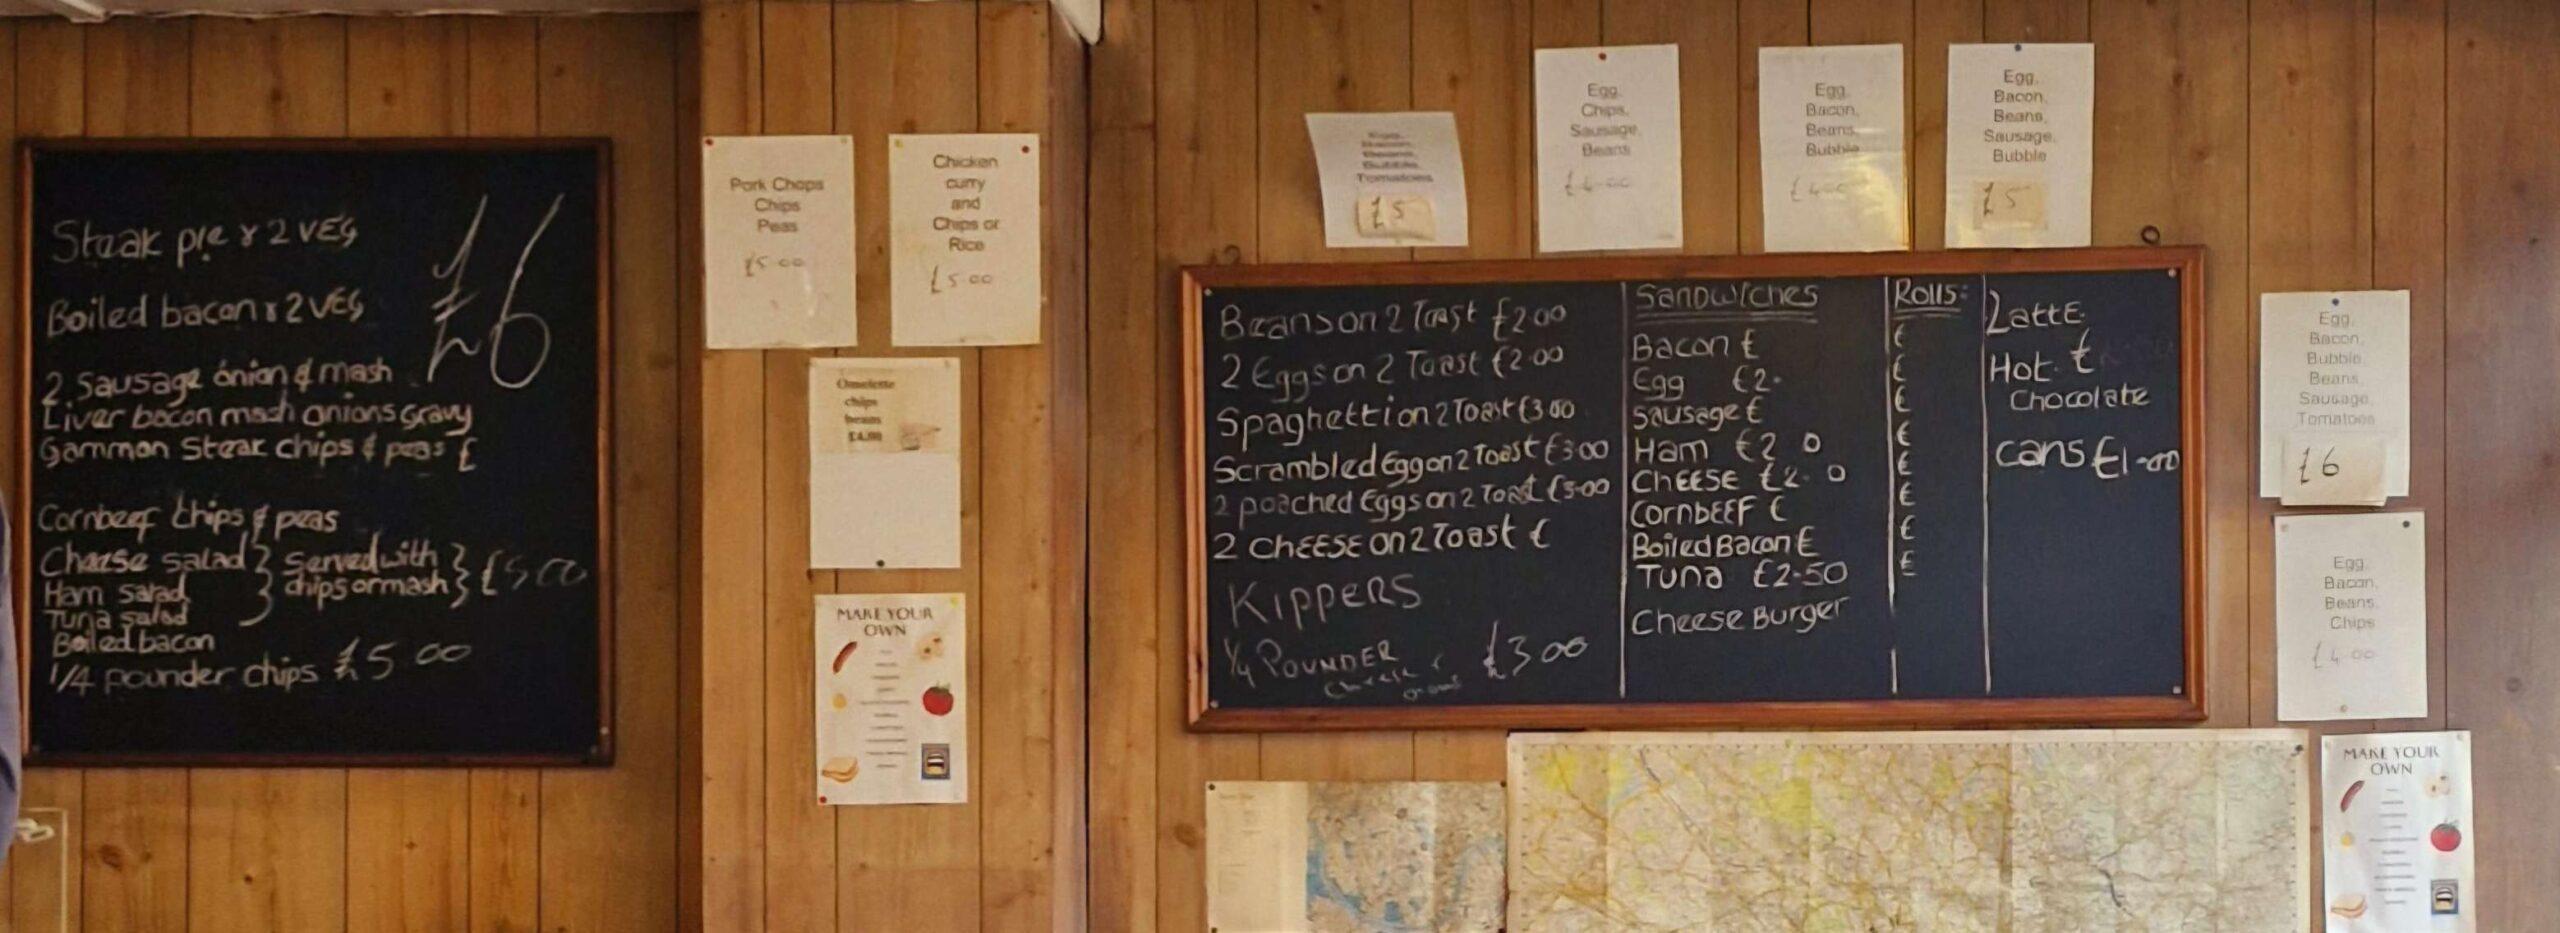 Steak pie & 2 VEG
£6
Boiled bacon & 2 VEG
2 Sausage onion & mash
Liver bacon mash onions gravy
Gammon Steak chips & peas £
Cornbeef chips & peas
Cheese salad } Served with } £5 00
Ham salad } chips or mash }
Tuna salad
Boiled bacon
1/4 pounder chips £5 00
Pork Chops
Chips
Peas
£5 00
Chicken
curry
and
Chips or
Rice
£5 00
Omelette
chips
beans
£4.00
MAKE YOUR
OWN
Bubble,
Tomatoes
£5
Egg,
Chips,
Sausage,
Beans
£4-00
Egg,
Bacon,
Beans,
Bubble
£4-00
Egg,
Bacon,
Beans,
Sausage,
Bubble
£5
Beans on 2 Toast £2 00
2 Eggs on 2 Toast £2.00
Spaghetti on 2 Toast £3 00
Scrambled Egg on 2 Toast £3.00
2 poached Eggs on 2 Toast £3.00
2 CHEESE ON 2 Toast £
KIPPERS
1/4 POUNDER £3 00
Cheese &
SANDWICHES
Bacon £
Egg £2.
Sausage £
Ham £2 0
CHEESE £2. 0
CORNBEEF £
Boiled Bacon £
Tuna £2-50
Cheese Burger
ROLLS:
£
£
£
£
£
£
£
£
LattE
Hot £
Chocolate
cans £1-00
Egg,
Bacon,
Bubble,
Beans,
Sausage,
Tomatoes
£6
Egg,
Bacon,
Beans,
Chips
£4 00
MAKE YOUR
OWN